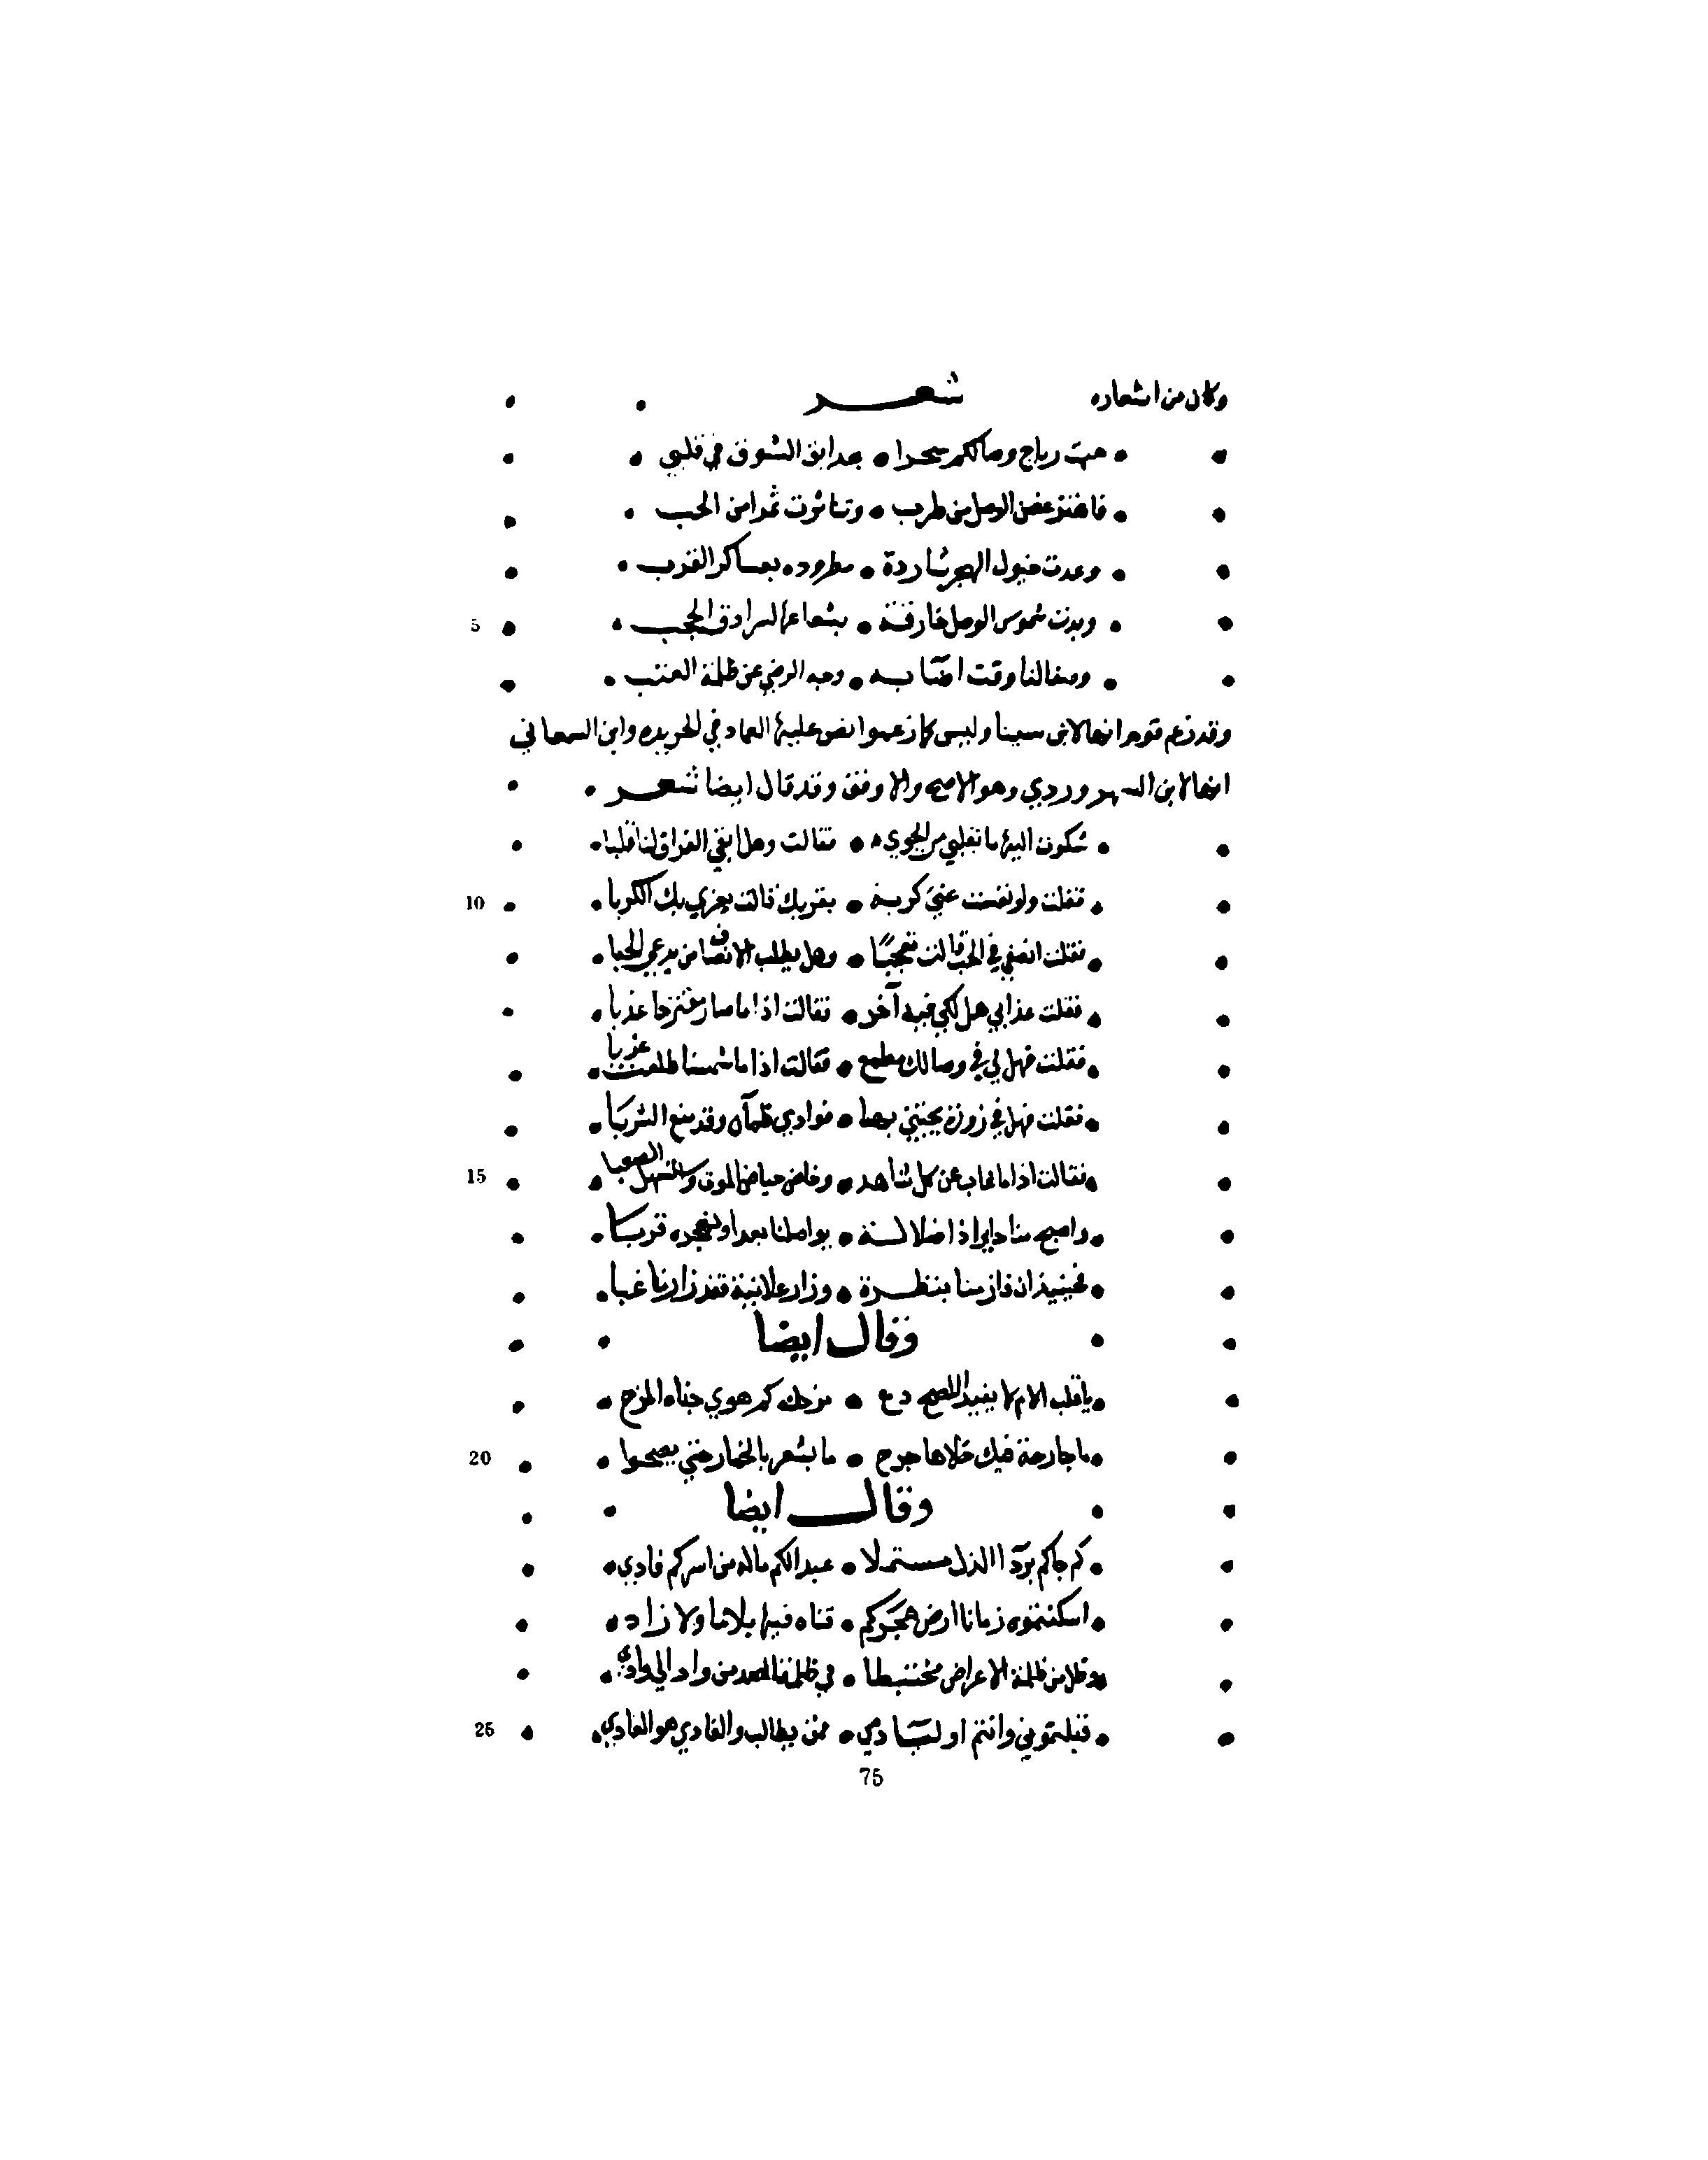 وكان من اشعاره شعر
هبت رياح وصالكم سحرا • بحدايق الشوق في قلبي
فاهتز غصن الوصل من طرب • وتناثرت ثمرا من الحب
وغدت خيول الهجر شاردة • مطروده بعساكر القرب
وبدت شموس الوصل خارقة • بشعاعها لسرادق الحجب 5
وصفا لنا وقت اضا به • وجه الرضي عن ظلمة العتب
وقد زعم قوم انها لابن سينا وليس كما زعموا نص عليها العماد في الخريده وابن السمعاني
انها لابن السهروردي وهو الاصح والاوفق وقد قال ايضا شعر
شكوت اليها ما بقلبي من الجوي • فقالت وهل ابقي الفراق لنا قلبا
فقلت ولو نفست عني كربة • بقربك قالت يعزي بك الكربا 10
فقلت انصفي في الحب قالت تعجبًا • وهل يطلب الانصاف من يدعي الحبا
فقلت عذابي هل لكي فيه آخر • فقالت اذا ما صار ممتزجا عذبا
فقلت فهل لي في وصالك مطمع • فقالت اذا ما شمسنا طلعت غربا
فقلت فهل في زورة يجتني بها • فوادي ظمآن وقد منع الشربا
فقالت اذا ما غاب عن كل شاهد • وخاض حياض الموت واستسهل الصعبا 15
واصبح فينا دايرا • يواصلنا بعدا ونهجره قربا
فحينيذ ان فاز منا بنظرة • وزار علانية فقد زارنا غبا
وقال ايضا
ياقلب الام لا يفيد النصح دع • مزحك كم هوي جناه المزح
ما جارحة فيك خلاها جرح • ما يشعر بالخمار حتي يصحوا 20
وقال ايضا
كم جاكم برد الذل مستملا • عبد لكم ماله من اسركم فادي
اسكنتموه زمانا ارض هجركم • فتاه فيها بلا ما ولا زاد
وظل من ظلمة الاعراض مختبطا • في ظلمة الصد من واد الي وادي
قبلتموني وانتم اوليا دمي • فمن يطالب والفادي هو العادي 25
75